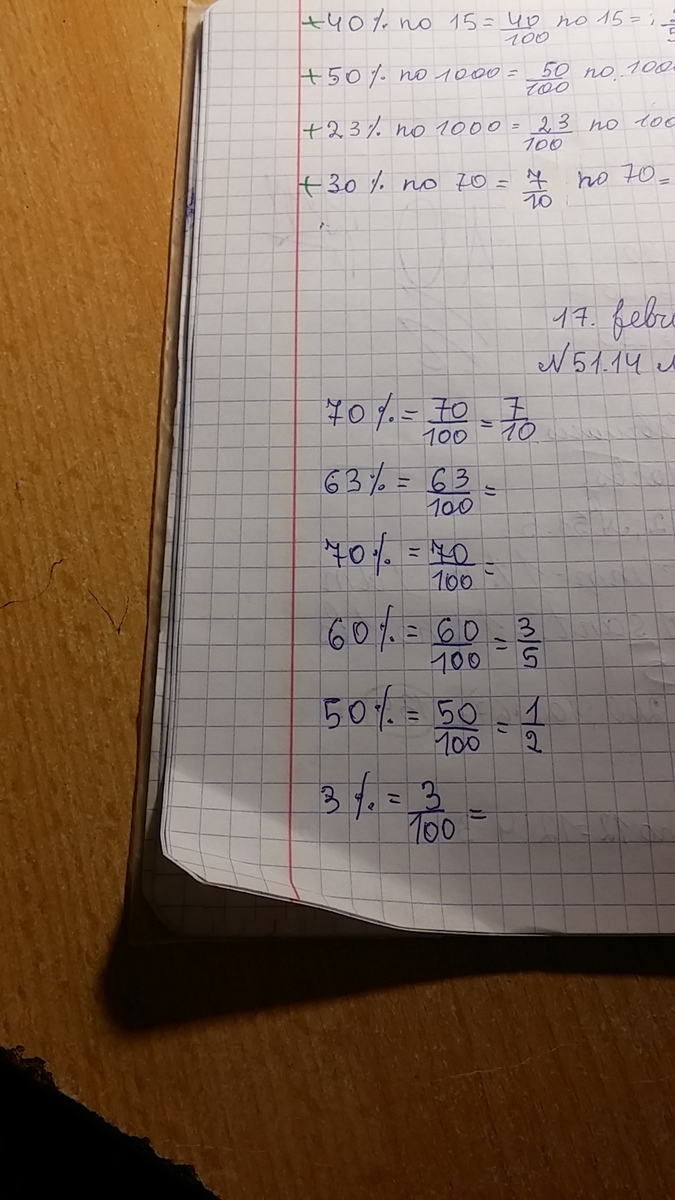 +40% no 15 = 40/100 no 15 =
+50% no 1000 = 50/100 no 100
+23% no 1000 = 23/100 no 100
+30% no 70 = 7/10 no 70 =
17. febru
N 51.14
70% = 70/100 = 7/10
63% = 63/100 =
70% = 70/100 =
60% = 60/100 = 3/5
50% = 50/100 = 1/2
3% = 3/100 =